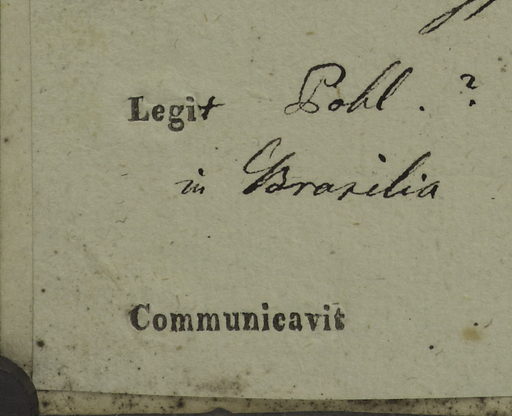 Legit Pohl. ?
in Brasilia
Communicavit